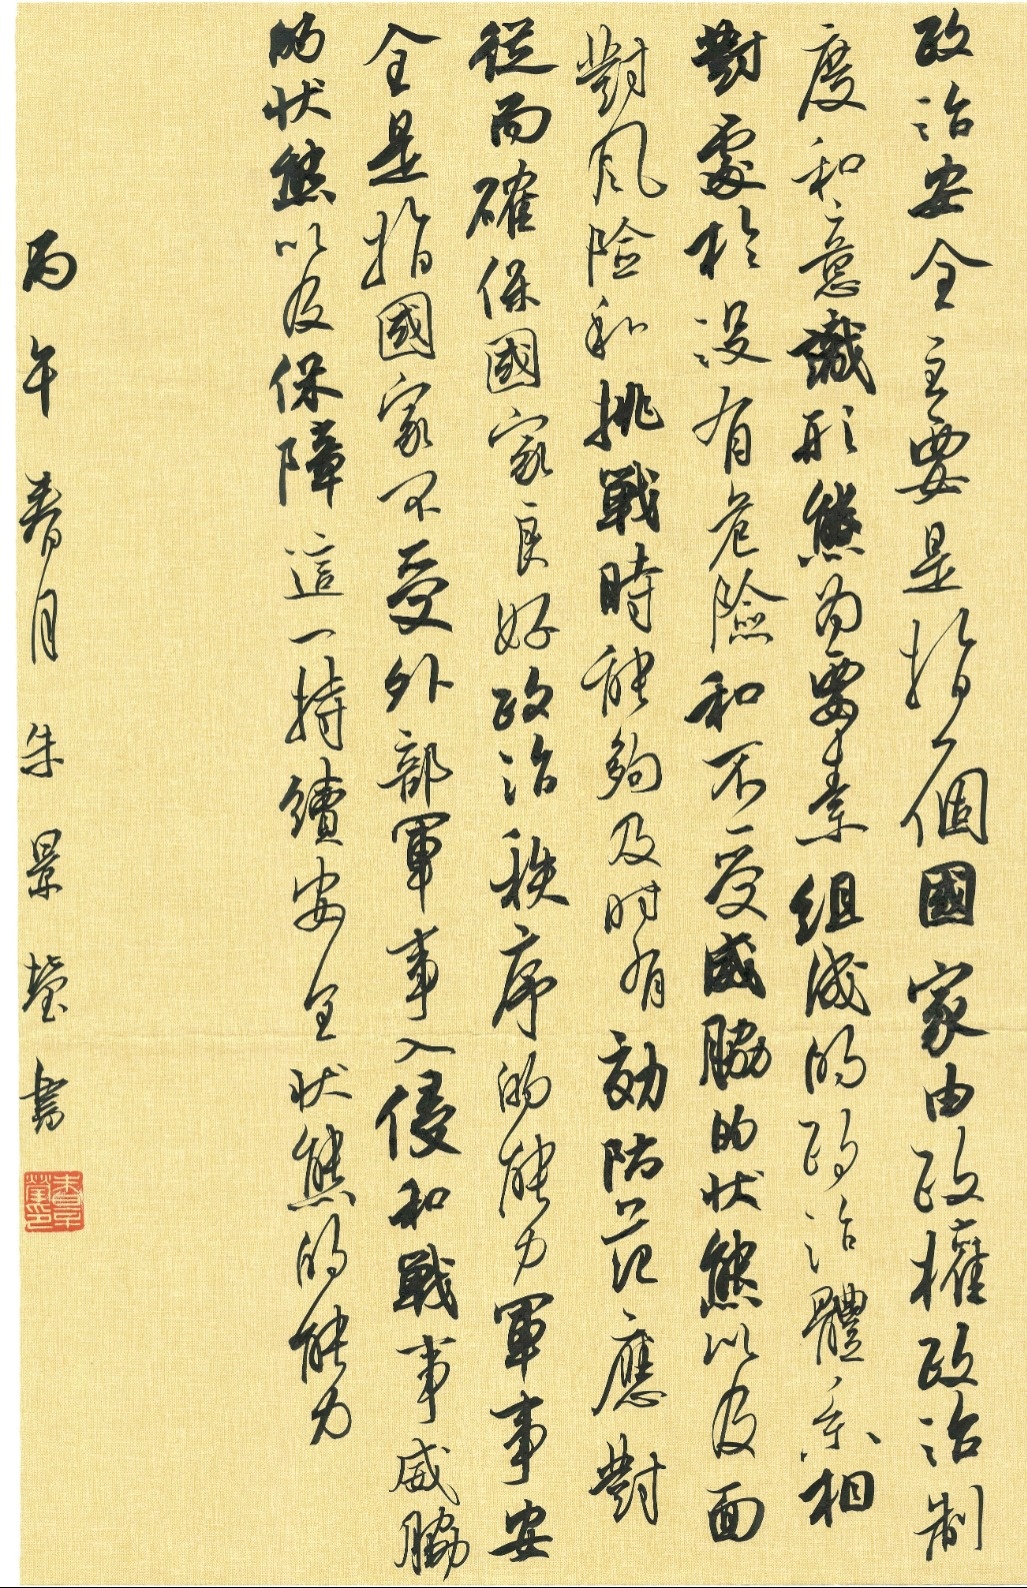 政治安全主要是指一個國家由政權政治制
度和意識形態為要素組成的政治體系相
對處於没有危險和不受威脇的状態以及面
對风险和挑戰時能夠及时有効防范應對
從而確保國家良好政治秩序的能力軍事安
全是指國家不受外部軍事入侵和戰事威脇
的状態以及保障這一持續安全状態的能力
丙午春月朱景瑩書